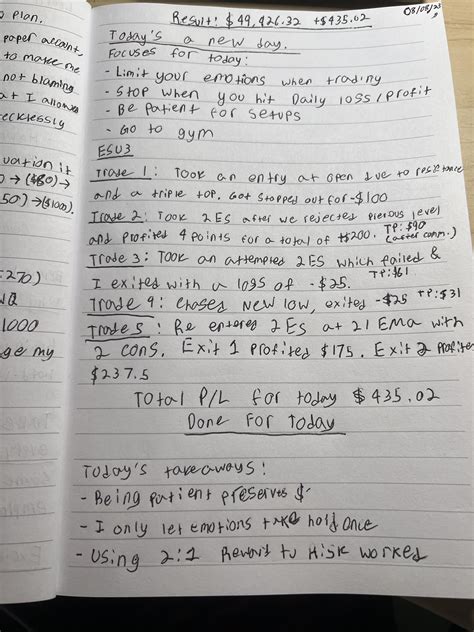 Plan.
paper account
to make me
not blaming
at I allowed
ecklessly
uation it
0 → ($80) →
50) → ($1000).
:270)
NQ
1000
ge my
08/08/23
Result: $49,426.32 +$435.02
Today's a new day.
Focuses for today:
- Limit your emotions when trading
- Stop when you hit Daily loss/profit
- Be patient for setups
- Go to gym
ESU3
Trade 1: Took an entry at open due to resistance
and a triple top. Got stopped out for -$100
Trade 2: Took 2ES after we rejected previous level
and profited 4 points for a total of +$200. TP: $90
(after comm.)
Trade 3: Took an attempted 2ES which failed &
I exited with a loss of -$25. TP: $61
Trade 4: Chased New low, exited -$25 TP: $31
Trade 5: Re entered 2Es at 21 EMA with
2 cons. Exit 1 profited $175. Exit 2 profited
$237.5
Total P/L for today $435.02
Done For Today
Today's takeaways:
- Being patient preserves $
- I only let emotions take hold once
- Using 2:1 Reward to Risk worked